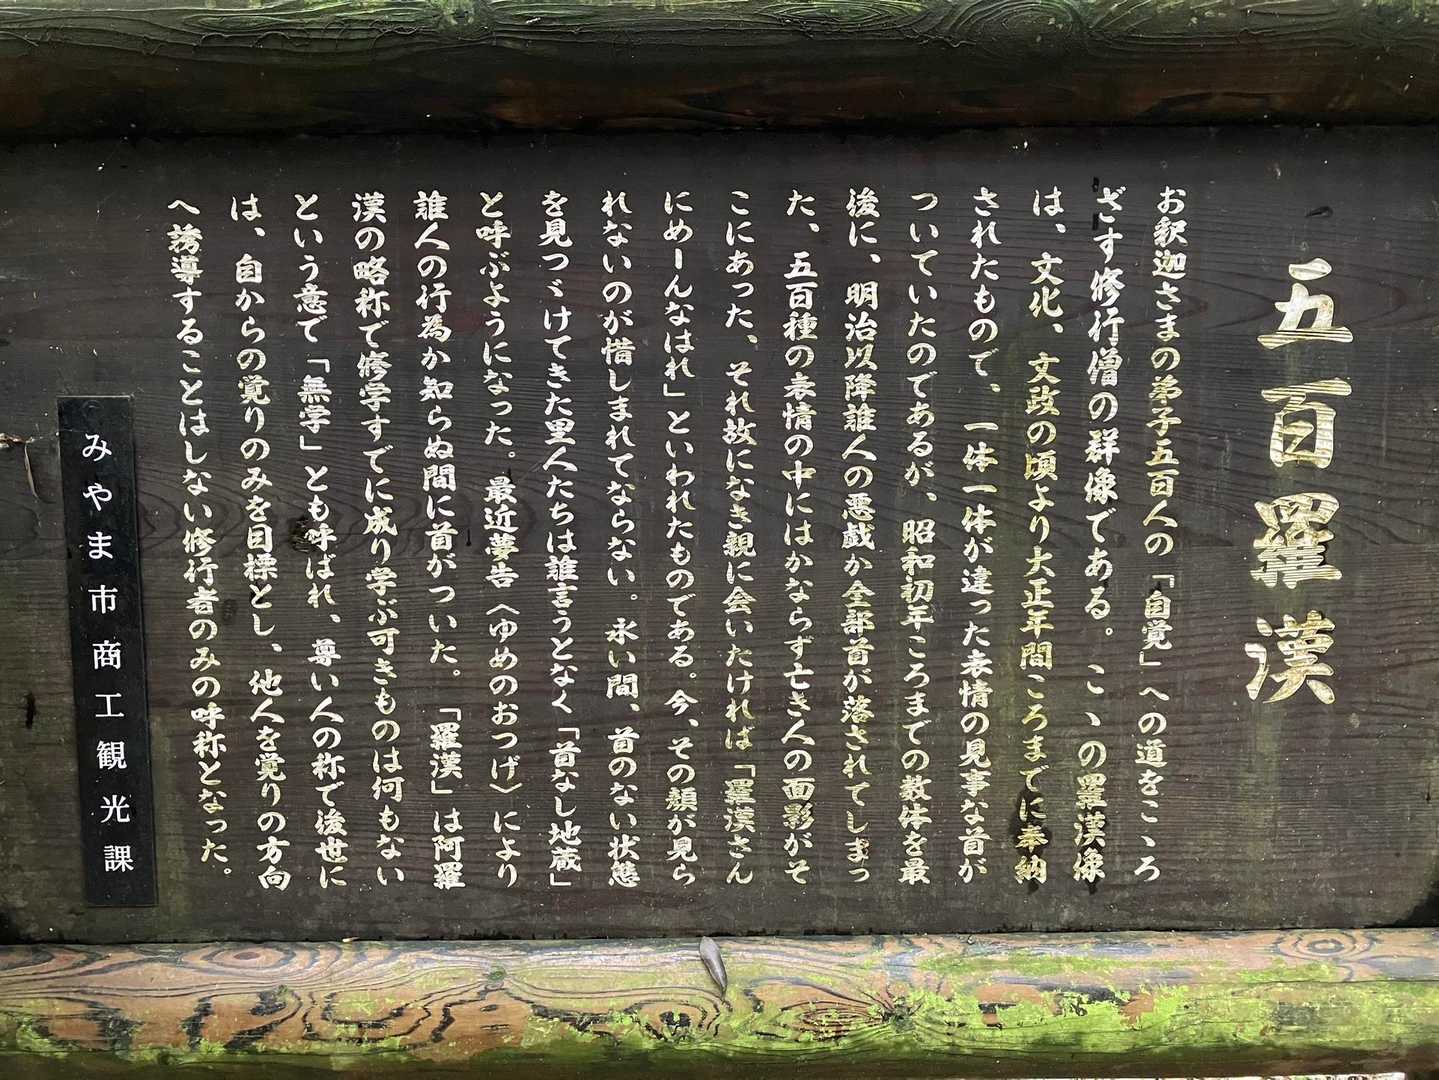 五百羅漢
お釈迦さまの弟子五百人の『自覚」への道をこゝろ
ざす修行僧の群像である。こゝの羅漢像
は、文化、文政の頃より大正年間ころまでに奉納
されたもので、一体一体が違った表情の見事な首が
ついていたのであるが、昭和初年ころまでの数体を最
後に、明治以降誰人の悪戯か全部首が落されてしまっ
た、五百種の表情の中にはかならず亡き人の面影がそ
こにあった、それ故になき親に会いたければ「羅漢さん
にめーんなはれ」といわれたものである。今、その顔が見ら
れないのが惜しまれてならない。永い間、首のない状態
を見つゞけてきた里人たちは誰言うとなく「首なし地蔵」
と呼ぶようになった。最近夢告〈ゆめのおつげ〉により
誰人の行為か知らぬ間に首がついた。「羅漢」は阿羅
漢の略称で修学すでに成り学ぶ可きものは何もない
という意で「無学」とも呼ばれ、尊い人の称で後世に
は、自からの覚りのみを目標とし、他人を覚りの方向
へ誘導することはしない修行者のみの呼称となった。
みやま市商工観光課